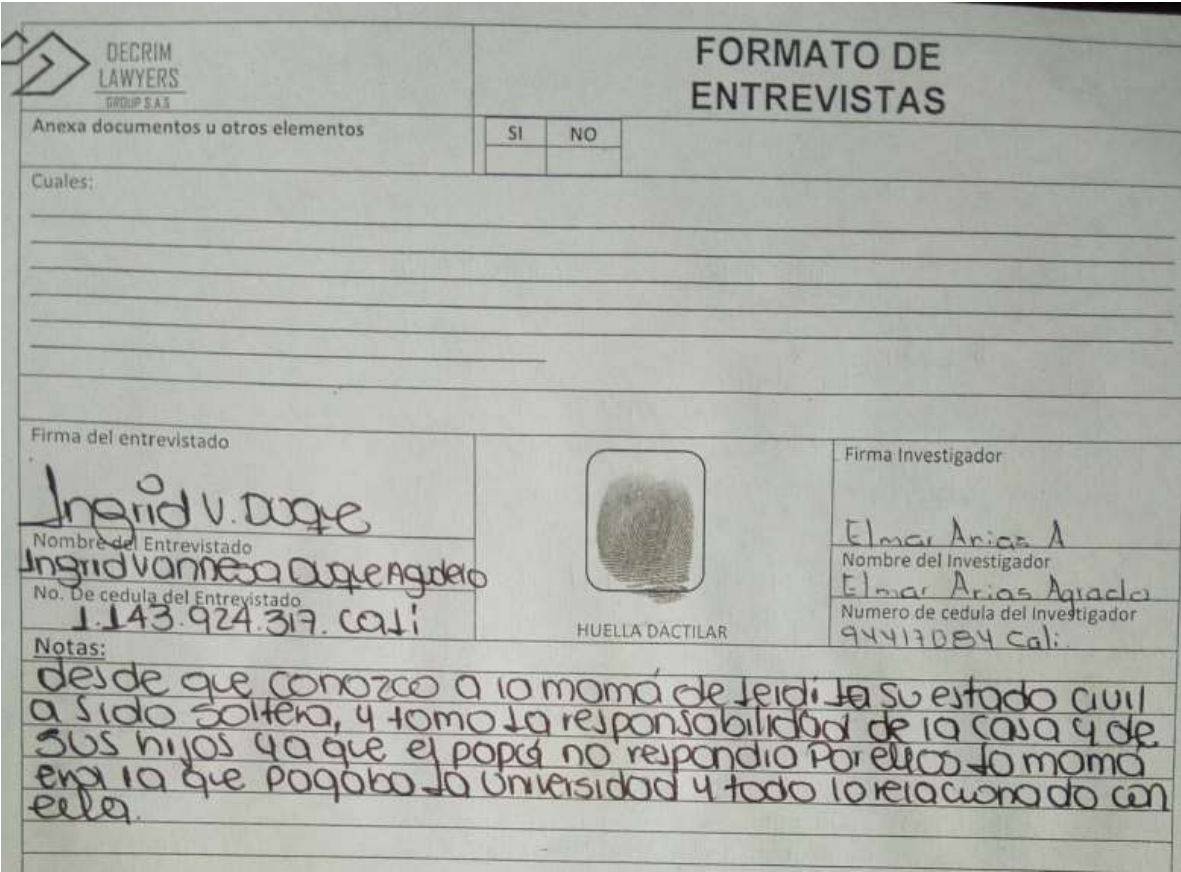 DECRIM
LAWYERS
GROUP S.A.S
FORMATO DE
ENTREVISTAS
Anexa documentos u otros elementos
SI NO
Cuales:
Firma del entrevistado
Ingrid V. Duque
Nombre del Entrevistado
Ingrid Vannesa Duque Agudelo
No. De cedula del Entrevistado
1.143.924.317. Cali
HUELLA DACTILAR
Firma Investigador
Elmar Arias A
Nombre del Investigador
Elmar Arias Agrado
Numero de cedula del Investigador
94417084 Cali.
Notas:
desde que conozco a la mamá de leidi la su estado civil
a sido soltera, y tomo la responsabilidad de la casa y de
sus hijos ya que el papá no respondio por ellos la mama
era la que pagaba la universidad y todo lo relacionado con
ella.